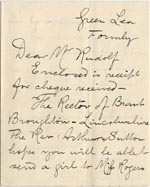 Green Lea
Formby
Dear Mr Rudolf
Enclosed is receipt
for cheque received –
The Rector of Brant
Broughton – Lincolnshire
The Rev: Arthur Sutton
hopes you will be able to
send a girl to Miss Rogers